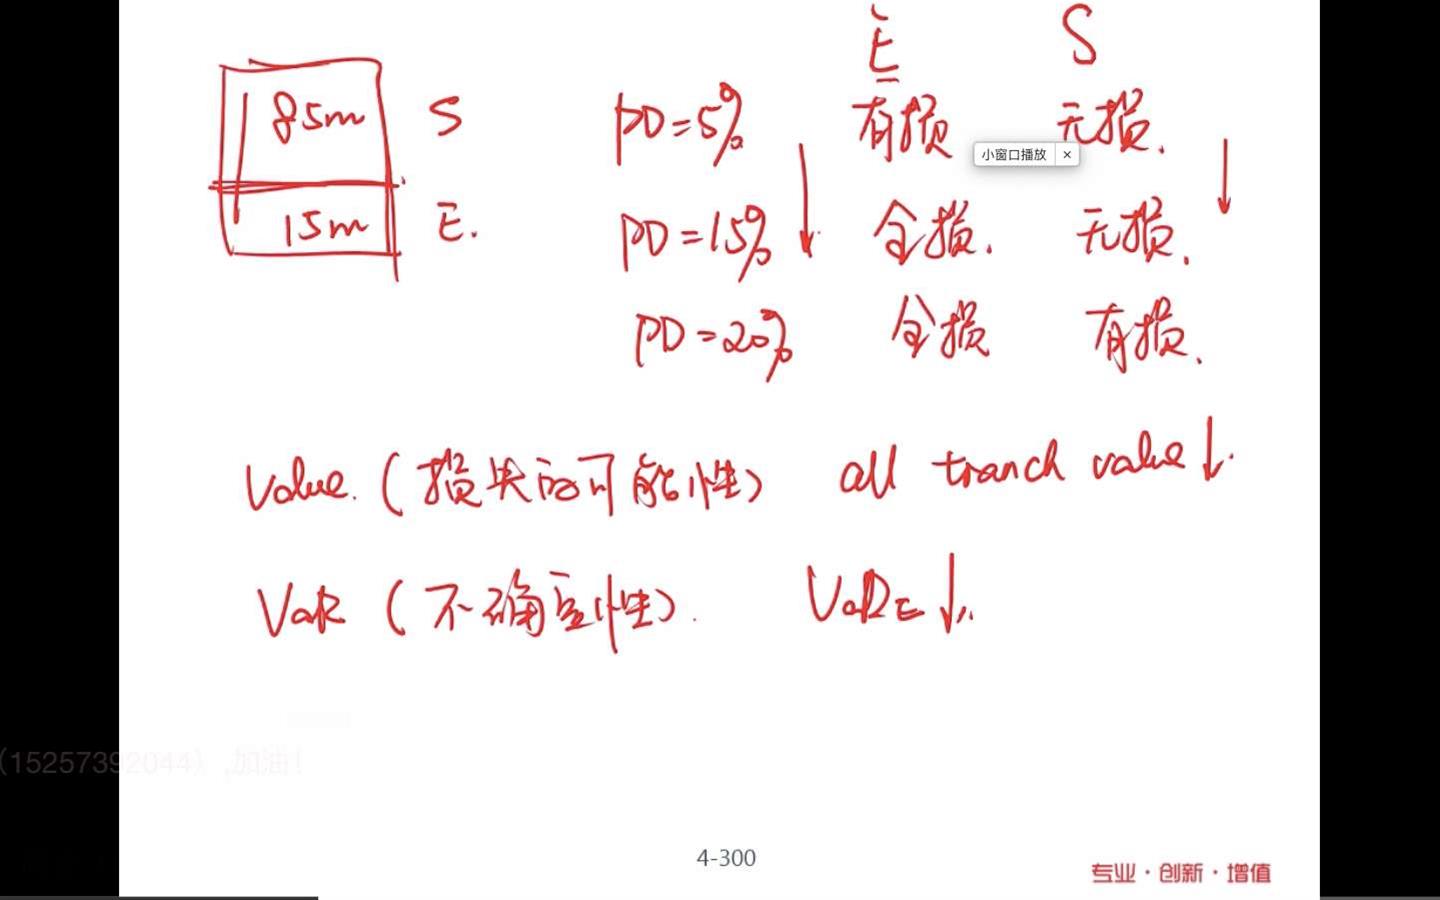 E S
85m S PD=5% 有损 无损.
小窗口播放 ×
15m E. PD=15% 全损. 无损.
PD=20% 全损 有损.
Value. (损失的可能性) all tranch value↓.
VaR (不确定性). VaR E ↓
(15257392044) ,加油!
4-300
专业·创新·增值